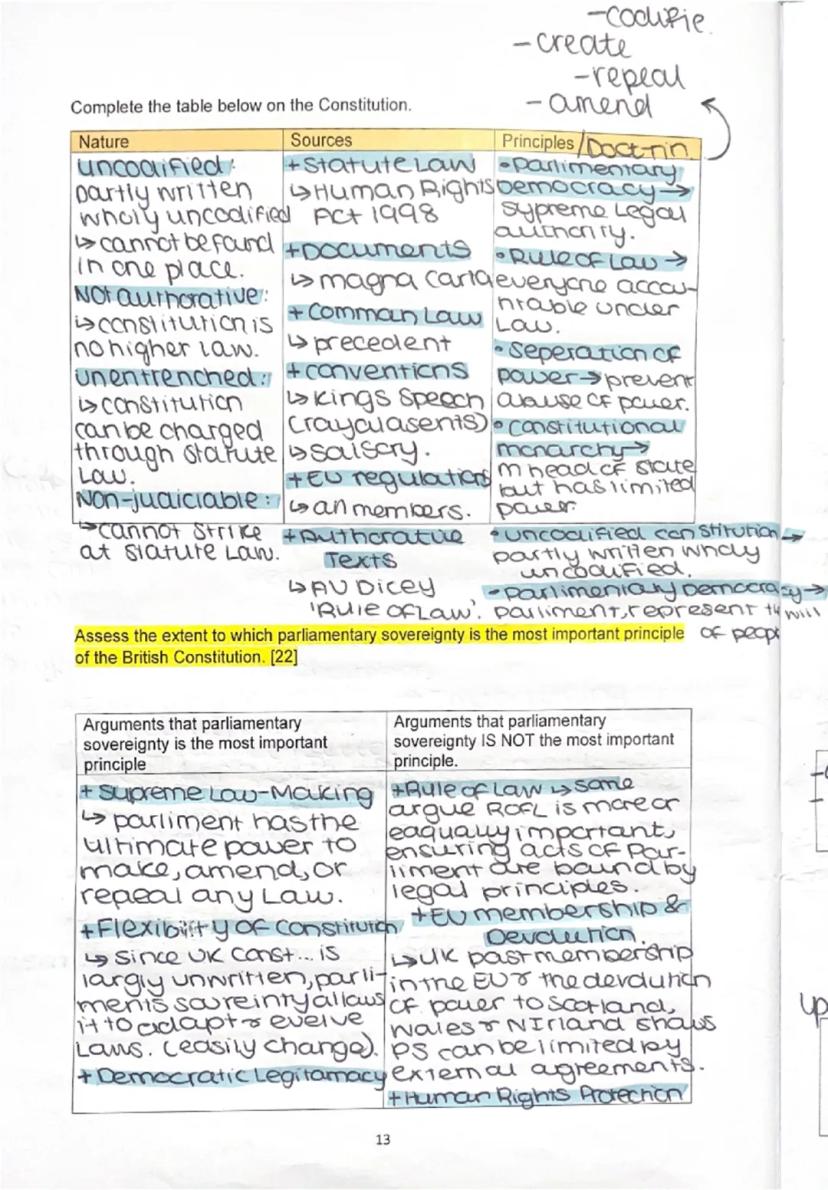 -codifie.
-create
-repeal
-amend
Complete the table below on the Constitution.
Nature
uncodified:
partly written
wholly uncodified
↳ cannot be found
in one place.
Not authorative:
↳ constitution is
no higher law.
unentrenched:
↳ constitution
can be charged
through statute
Law.
Non-judiciable:
↳ cannot strike
at statute Law.
Sources
+ Statute Law
↳ Human Rights
Act 1998
+ Documents
↳ magna carta
+ Comman Law
↳ precedent
+ conventions
↳ Kings Speech
(royal asents)
↳ Salisory.
+ EU regulations
↳ an members.
+ Authorative
Texts
↳ AV Dicey
'Rule of Law'.
Principles /Doctrin
• Parlimentary
Democracy →
supreme legal
authority.
• Rule of Law →
everyone accou-
ntable under
Law.
• Seperation of
power → prevent
abuse of power.
• constitutional
monarchy →
m head of state
but has limited
power.
• uncodified constitution →
partly written wholy
uncodified.
• Parlimentary Democracy →
parliment, represent the will
of peop
Assess the extent to which parliamentary sovereignty is the most important principle
of the British Constitution. [22]
Arguments that parliamentary
sovereignty is the most important
principle
+ Supreme Law-Making
↳ parliment has the
ultimate power to
make, amend, or
repeal any Law.
+ Flexibility of constitutch
↳ since UK const... is
largly unwritten, parli-
ments soureinty allows
it to adapt & evelve
Laws. (easily change).
+ Democratic Legitamacy
Arguments that parliamentary
sovereignty IS NOT the most important
principle.
+Rule of Law ↳ some
argue ROFL is more or
eaqually important,
ensuring acts of Par-
liment are bound by
legal principles.
+EU membership &
Devolution.
↳ UK past membership
in the EU & the devolution
of power to Scotland,
Wales & N Irland shows
PS can be limited by
external agreements.
+Human Rights Protection
13
up